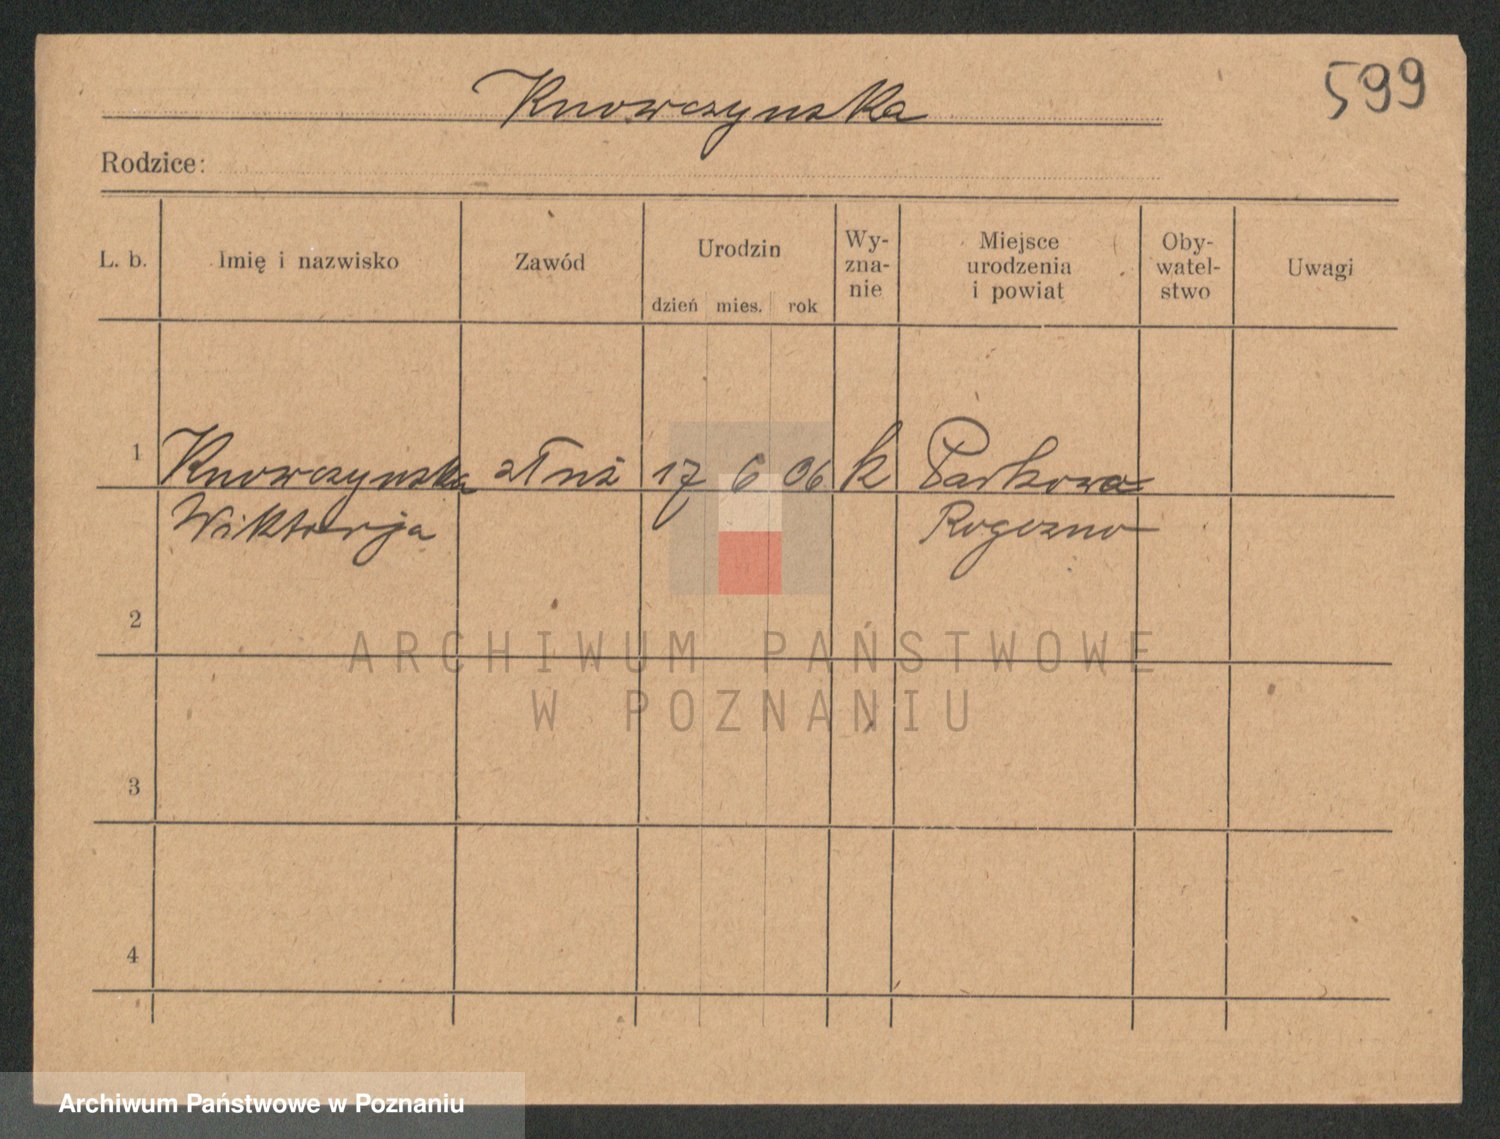 Knowczynska
599
Rodzice:
L. b.
Imię i nazwisko
Zawód
Urodzin
dzień mies. rok
Wy-
zna-
nie
Miejsce
urodzenia
i powiat
Oby-
watel-
stwo
Uwagi
1 Knowczynska 17 6 06 k Parkowo
Wiktorja Rogozno
2
3
4
ARCHIWUM PAŃSTWOWE
W POZNANIU
Archiwum Państwowe w Poznaniu